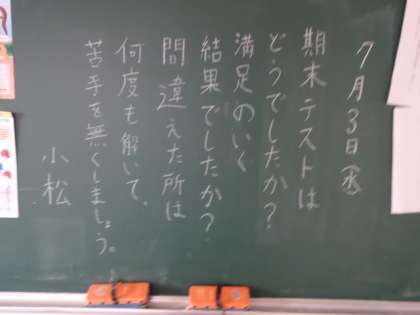 7月3日㊌
期末テストは
どうでしたか?
満足のいく
結果でしたか?
間違えた所は
何度も解いて、
苦手を無くしましょう。
小松